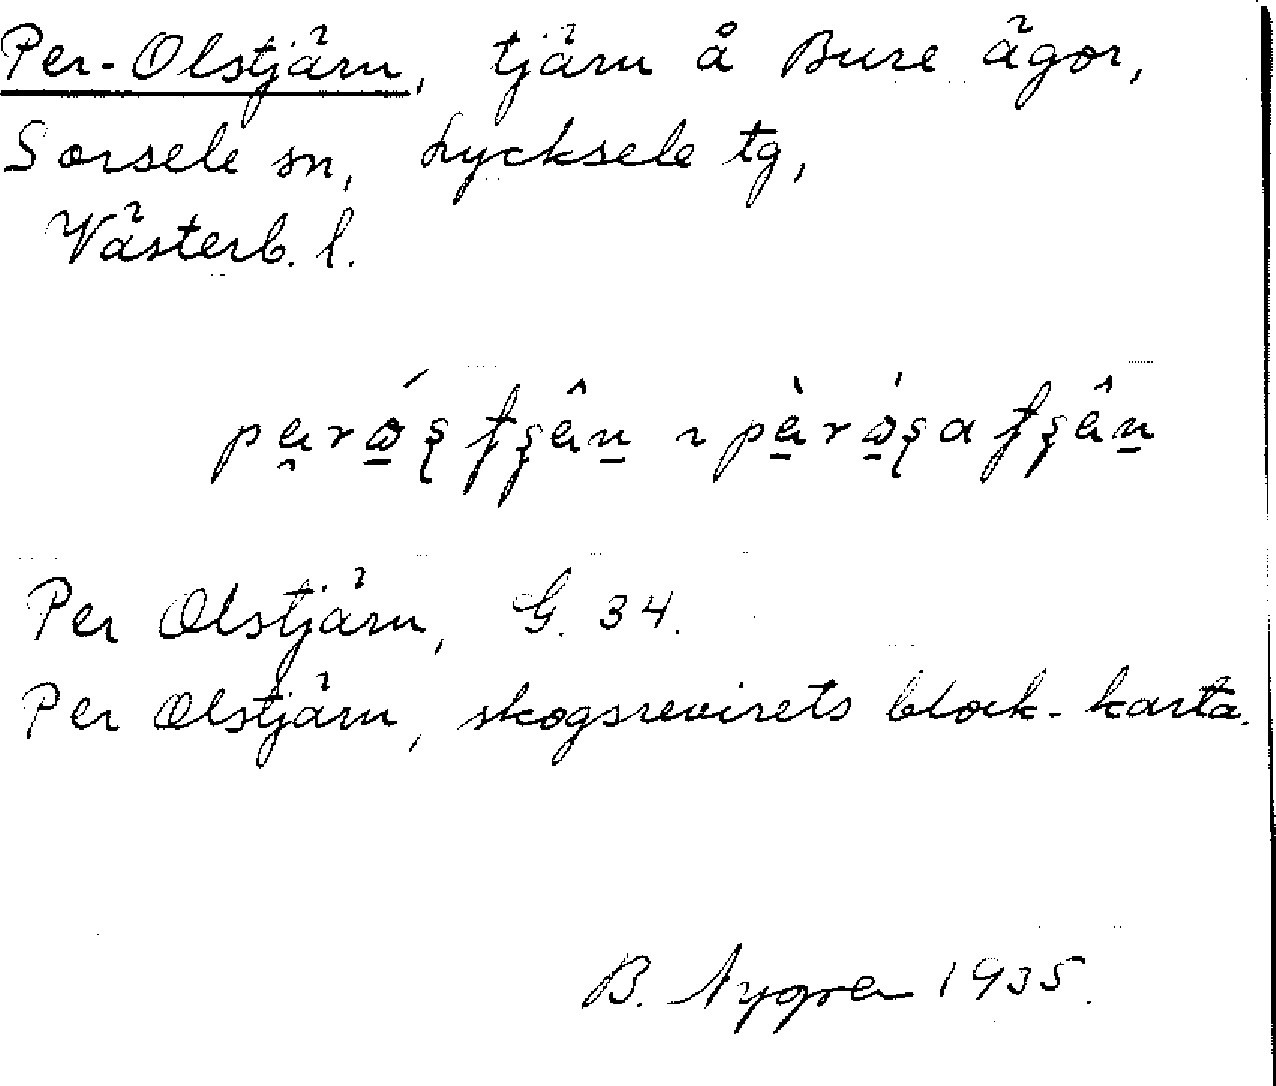 Per-Olstjärn, tjärn å Bure ägor,
Sorsele sn, Lycksele tg,
Västerb. l.
Per Olstjärn, G. 34.
Per Olstjärn, skogsrevirets block-karta.
B. Nygren 1935.